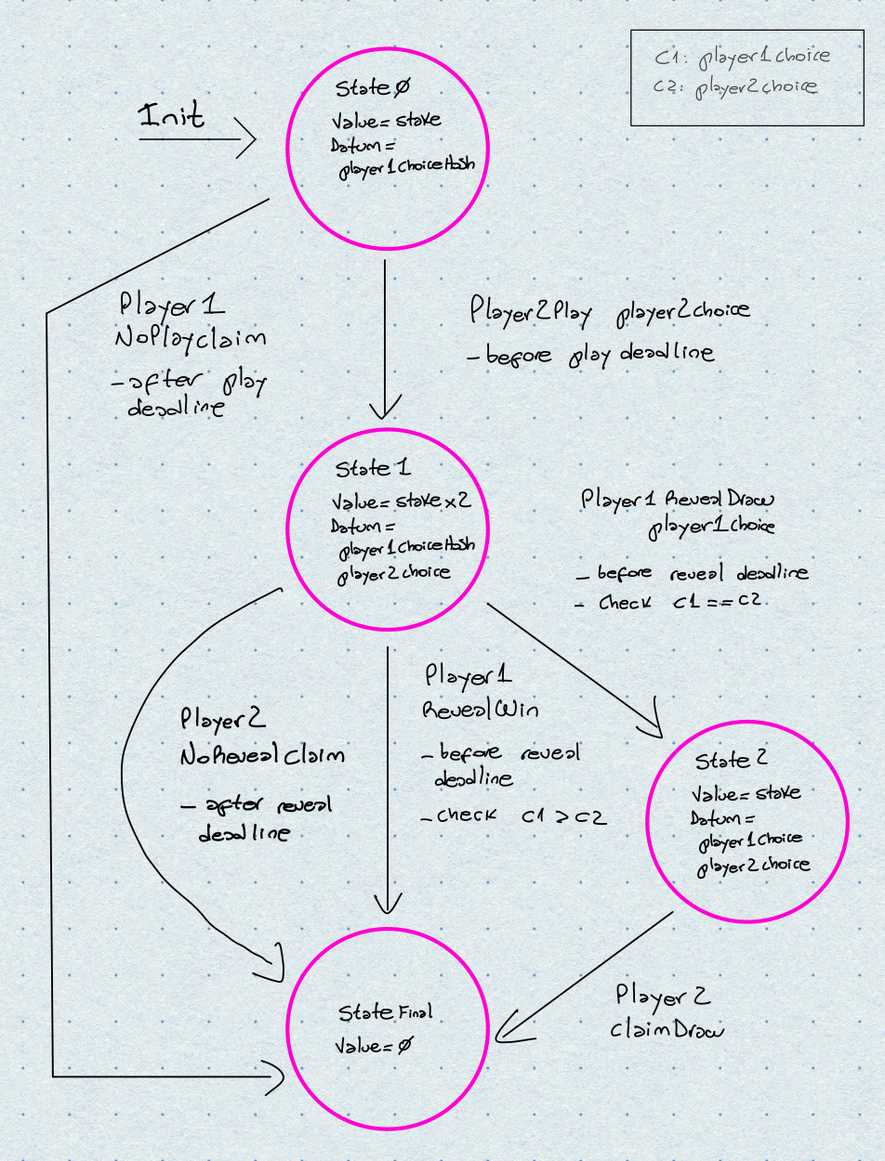 C1: player1choice
C2: player2choice
Init
State Ø
Value = stake
Datum =
player1ChoiceHash
Player1
NoPlayclaim
- after play
deadline
Player2Play player2choice
- before play deadline
State 1
Value = stake x2
Datum =
player1ChoiceHash
player2choice
Player1 RevealDraw
player1choice
- before reveal deadline
- check C1 == C2
Player2
NoRevealClaim
- after reveal
deadline
Player1
RevealWin
- before reveal
deadline
- check C1 > C2
State 2
Value = stake
Datum =
player1choice
player2choice
Player 2
claimDraw
State Final
Value = Ø